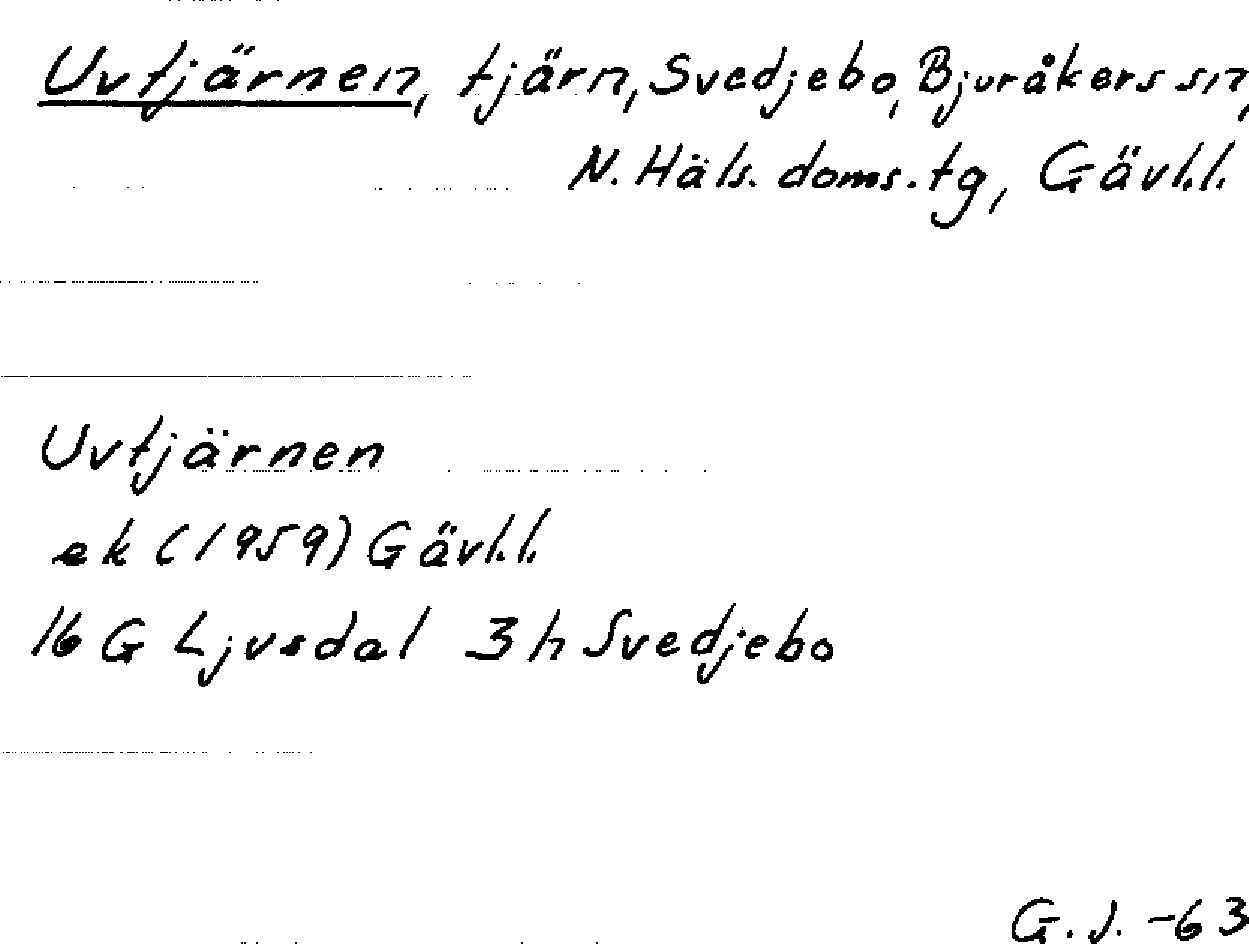 Uvtjärnen, tjärn, Svedjebo, Bjuråkers sn,
N. Häls. doms. tg, Gävl.l.
Uvtjärnen
ek (1959) Gävl.l.
16 G Ljusdal 3 h Svedjebo
G. J. -63